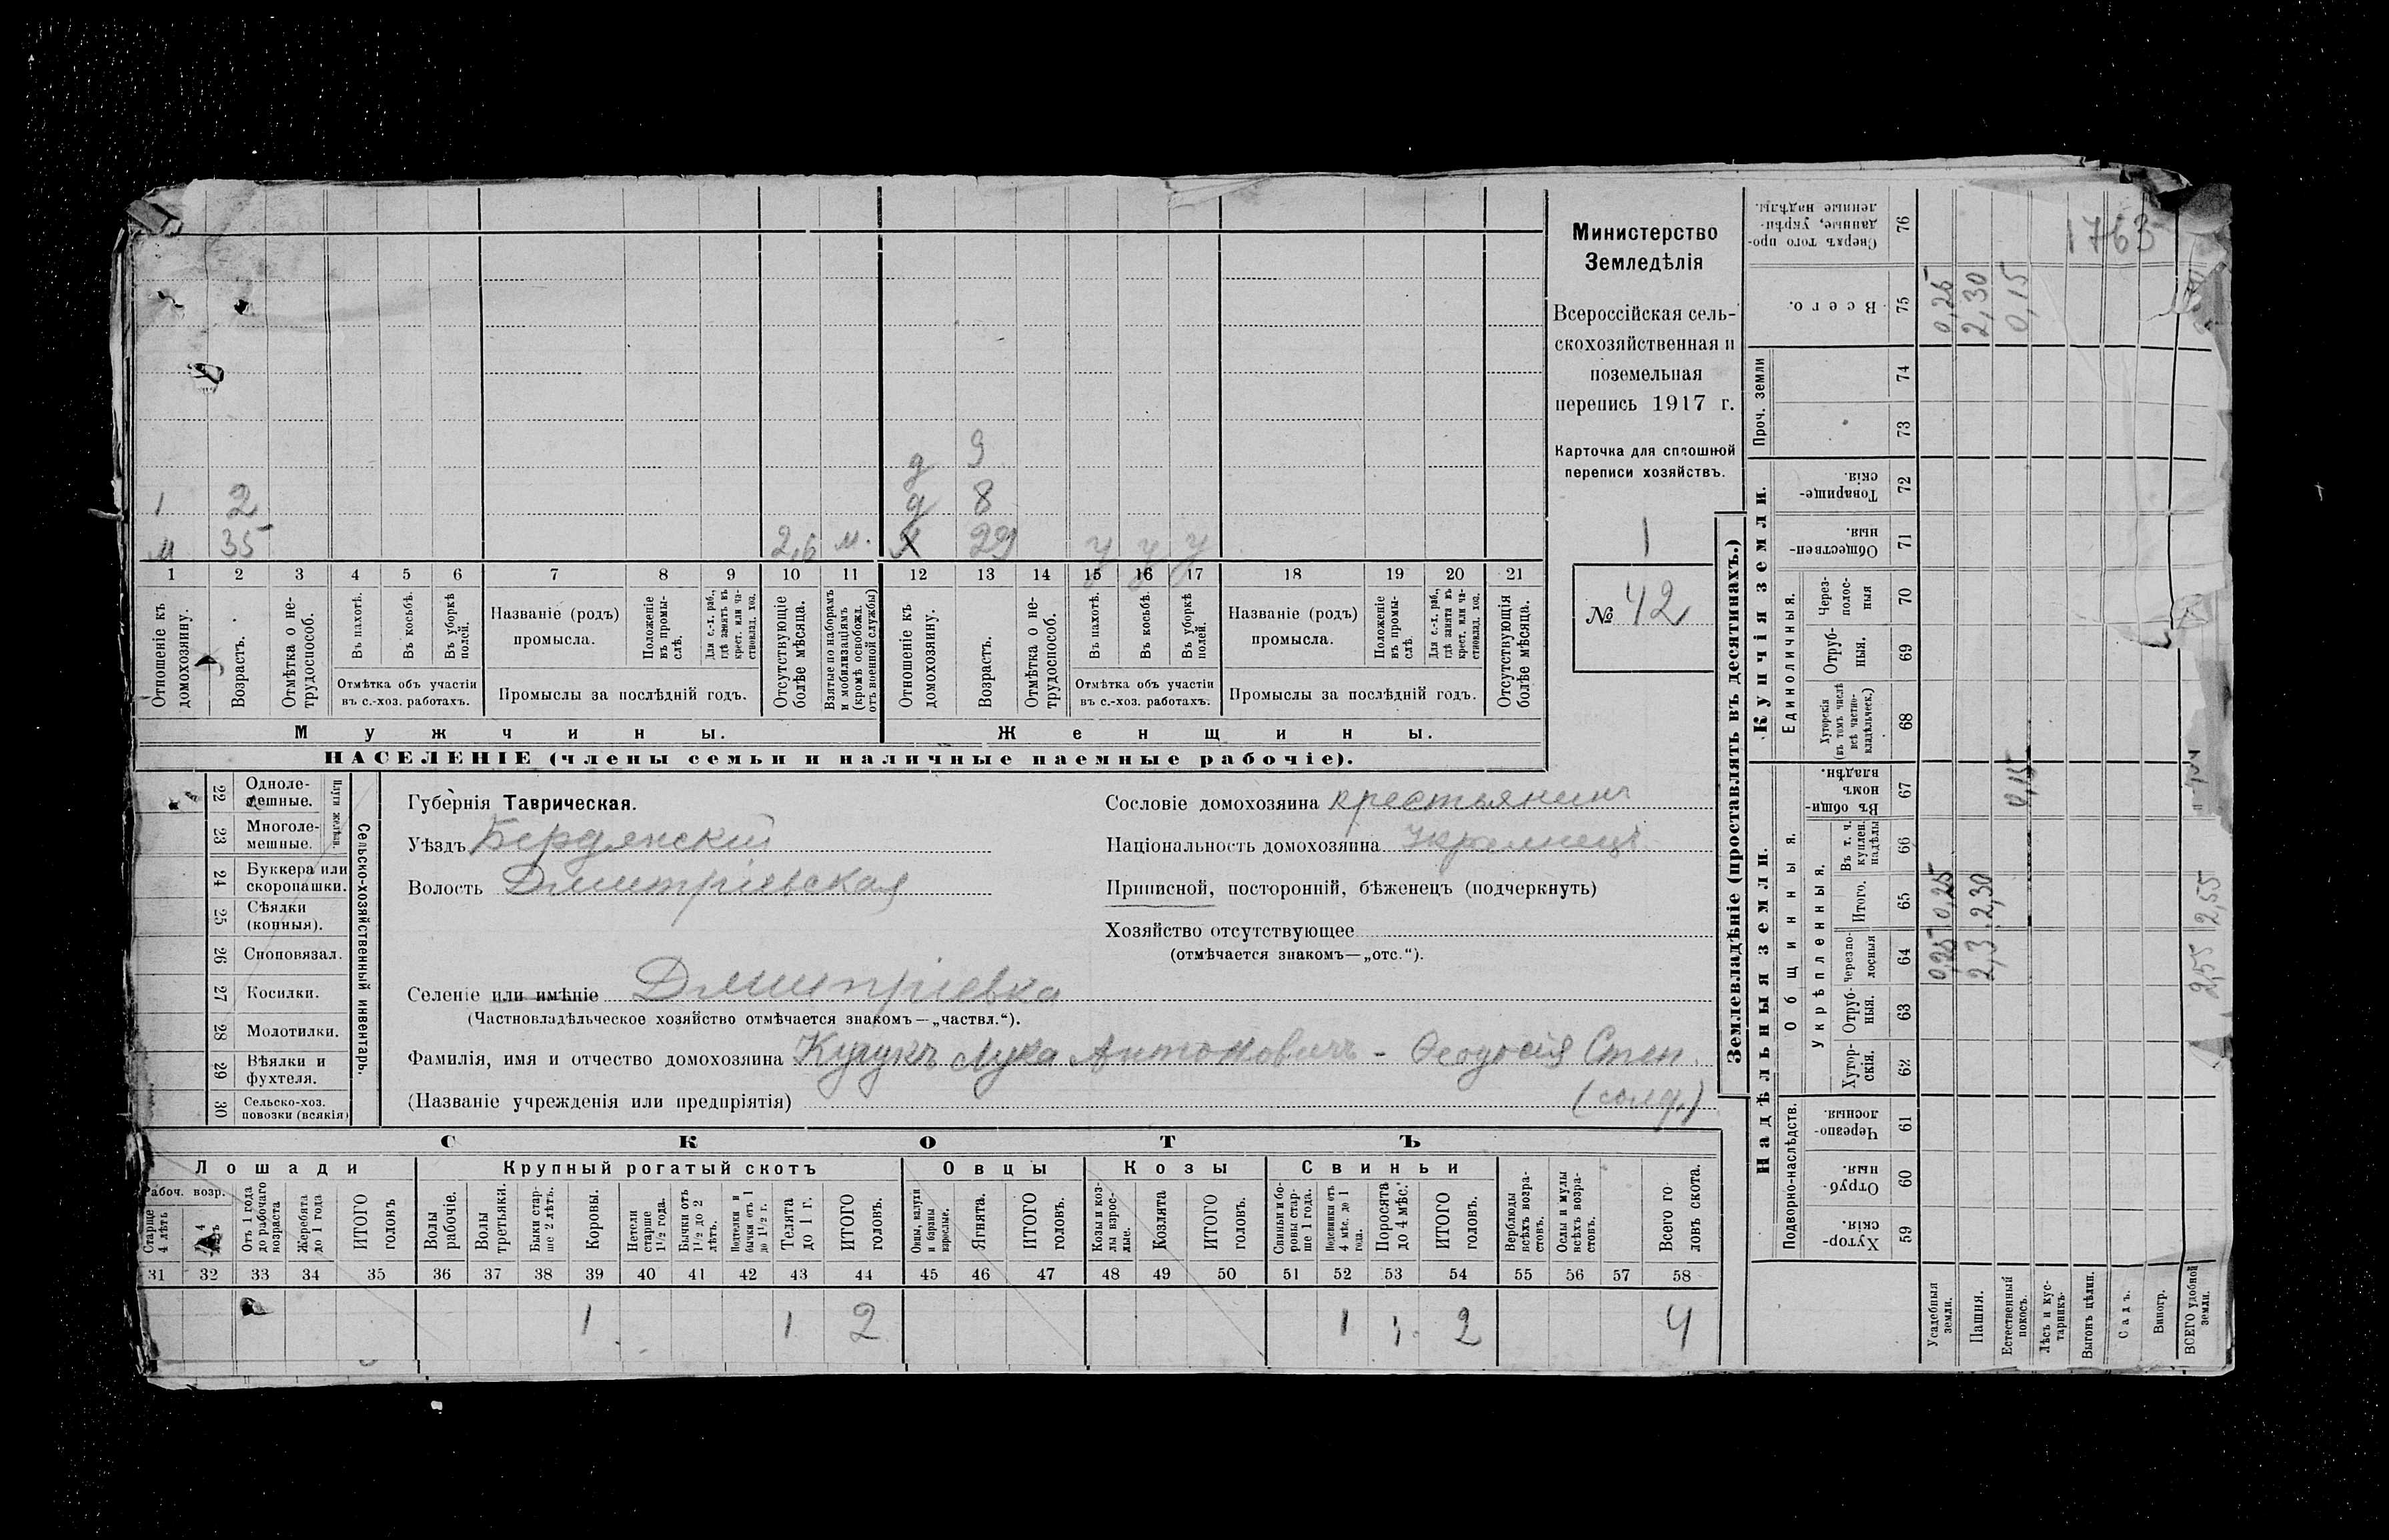 Министерство
Земледѣлія
Всероссійская сель-
скохозяйственная и
поземельная
перепись 1917 г.
Карточка для сплошной
переписи хозяйствъ.
1
№ 42
д 9
1 2 д 8
м 35 2,6 м. х 29 у у у
1 2 3 4 5 6 7 8 9 10 11 12 13 14 15 16 17 18 19 20 21
Отношеніе къ домохозяину.
Возрастъ.
Отмѣтка о не-трудоспособ.
Въ пахотѣ.
Въ косьбѣ.
Въ уборкѣ полей.
Отмѣтка объ участіи
въ с.-хоз. работахъ.
Названіе (родъ)
промысла.
Положеніе въ промы-слѣ.
Для с.-х. раб., гдѣ занятъ въ крест. или ча-стновлад. хоз.
Промыслы за послѣдній годъ.
Отсутствующіе болѣе мѣсяца.
Взятые по наборамъ и мобилизаціямъ (кромѣ освобожд. отъ военной службы)
Отношеніе къ домохозяину.
Возрастъ.
Отмѣтка о не-трудоспособ.
Въ пахотѣ.
Въ косьбѣ.
Въ уборкѣ полей.
Отмѣтка объ участіи
въ с.-хоз. работахъ.
Названіе (родъ)
промысла.
Положеніе въ промы-слѣ.
Для с.-х. раб., гдѣ занятъ въ крест. или ча-стновлад. хоз.
Промыслы за послѣдній годъ.
Отсутствующія болѣе мѣсяца.
Мужчины. Женщины.
НАСЕЛЕНІЕ (члены семьи и наличные наемные рабочіе).
22 Одноле-мешные.
23 Многоле-мешные.
Плуги желѣзн.
24 Буккера или скоропашки.
25 Сѣялки (конныя).
26 Сноповязал.
27 Косилки.
28 Молотилки.
29 Вѣялки и фухтеля.
30 Сельско-хоз. повозки (всякія)
Сельско-хозяйственный инвентарь.
Губернія Таврическая.
Уѣздъ Бердянскій
Волость Дмитріевская
Сословіе домохозяина крестьянинъ
Національность домохозяина Украинецъ
Приписной, посторонній, бѣженецъ (подчеркнуть)
Хозяйство отсутствующее
(отмѣчается знакомъ—„отс.“).
Селеніе или имѣніе Дмитріевка
(Частновладѣльческое хозяйство отмѣчается знакомъ—„частвл.“).
Фамилія, имя и отчество домохозяина Лука Антоновичъ - Ѳеодосія Степ.
(Названіе учрежденія или предпріятія) (солд.)
СКОТЪ
Лошади Крупный рогатый скотъ Овцы Козы Свиньи
Рабоч. возр.
Старше 4 лѣтъ
Отъ 1 года до рабочаго возраста
Жеребята до 1 года
ИТОГО головъ
Волы рабочіе.
Волы третьяки.
Быки стар-ше 2 лѣтъ.
Коровы.
Нетели старше 1½ года.
Бычки отъ 1½ до 2 лѣтъ.
Подтелки и бычки отъ 1 до 1½ г.
Телята до 1 г.
ИТОГО головъ.
Овцы, валухи и бараны взрослые.
Ягнята.
ИТОГО головъ.
Козы и коз-лы взрос-лые.
Козлята
ИТОГО головъ.
Свиньи и бо-ровы стар-ше 1 года.
Подсвинки отъ 4 мѣс. до 1 года.
Поросята до 4 мѣс.
ИТОГО головъ.
Верблюды всѣхъ возра-стовъ.
Ослы и мулы всѣхъ возра-стовъ.
Всего го-ловъ скота.
31 32 33 34 35 36 37 38 39 40 41 42 43 44 45 46 47 48 49 50 51 52 53 54 55 56 57 58
1 1 2 1 1 2 4
Землевладѣніе (проставлять въ десятинахъ.)
Надѣльныя земли. Купчія земли. Проч. земли
Подворно-наслѣдств. Общинныя. Единоличныя.
Укрѣпленныя.
59 Хутор-скія.
60 Отруб-ныя.
61 Черезпо-лосныя.
62 Хутор-скія.
63 Отруб-ныя.
64 Черезпо-лосныя
65 Итого.
66 Въ т. ч. куплен. надѣлы
67 Въ общин-номъ владѣн.
68 Хуторскія (въ томъ числѣ всѣ частно-владѣльческ.)
69 Отруб-ныя.
70 Через-полос-ныя
71 Обществен-ныя.
72 Товарище-скія
73
74
75 Всего.
76 Сверхъ того про-данные, укрѣп-ленные надѣлы.
Усадебныя земли. 0,25 0,25 0,25
Пашня. 2,3 2,30 2,30
Естественный покосъ. 0,15 0,15
Лѣсъ и кус-тарникъ.
Выгонъ цѣлин.
Садъ.
Виногр.
ВСЕГО удобной земли. 2,55 2,55
1763